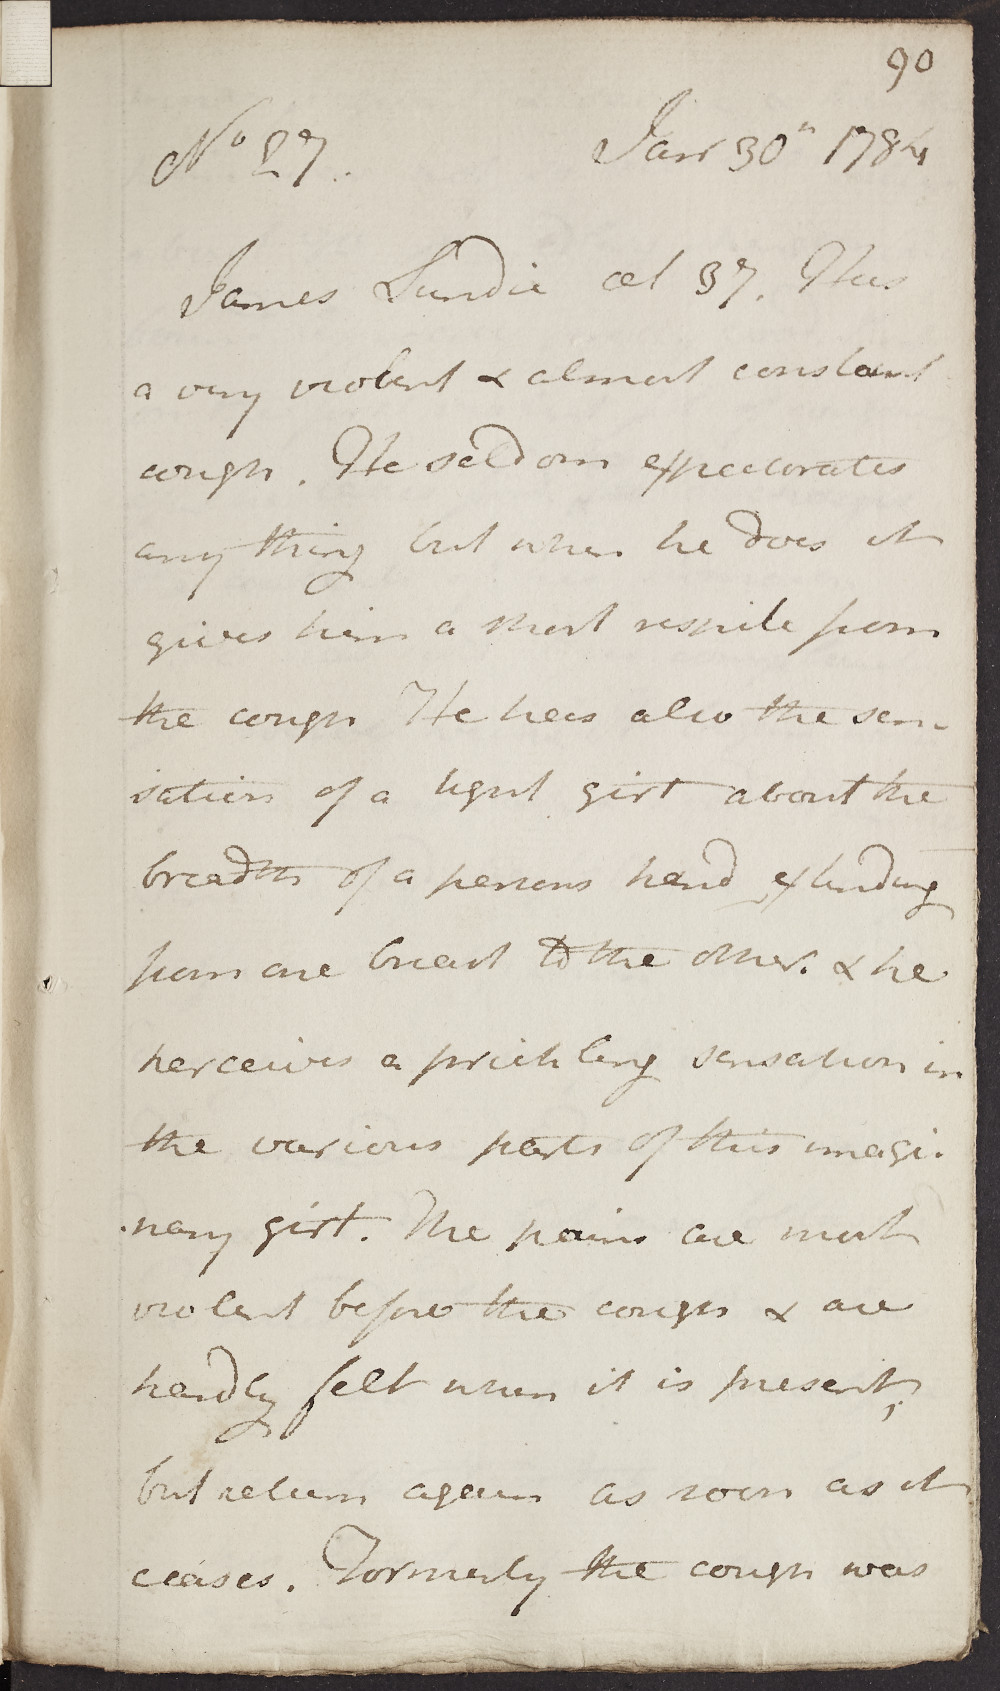 90
No 27. Janr 30th 1784
James Lundie aet 37. Has
a very violent & almost constant
cough. He seldom expectorates
any thing but when he does it
gives him a short respite from
the cough He has also the sen-
sation of a tight girt about the
breadth of a persons hand extending
from one breast to the other. & he
perceives a prickling sensation in
the various parts of this imagi-
-nary girt. The pains are most
violent before the cough & are
hardly felt when it is present,
but return again as soon as it
ceases. Formerly the cough was